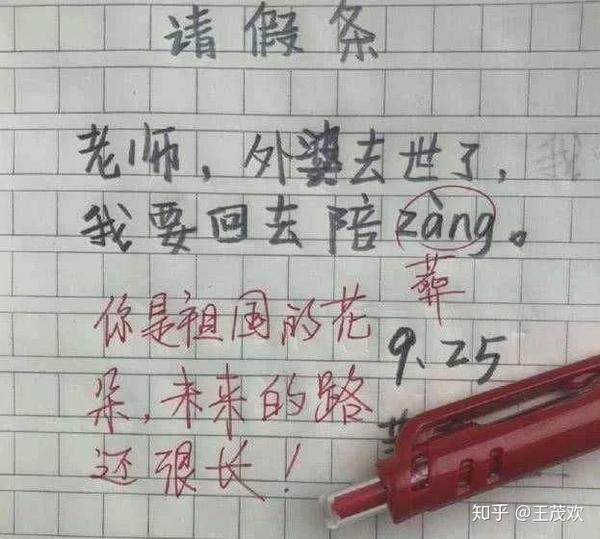 请假条
老师，外婆去世了，
我要回去陪zàng。
葬
9.25
你是祖国的花
朵，未来的路
还很长！
知乎 @王茂欢